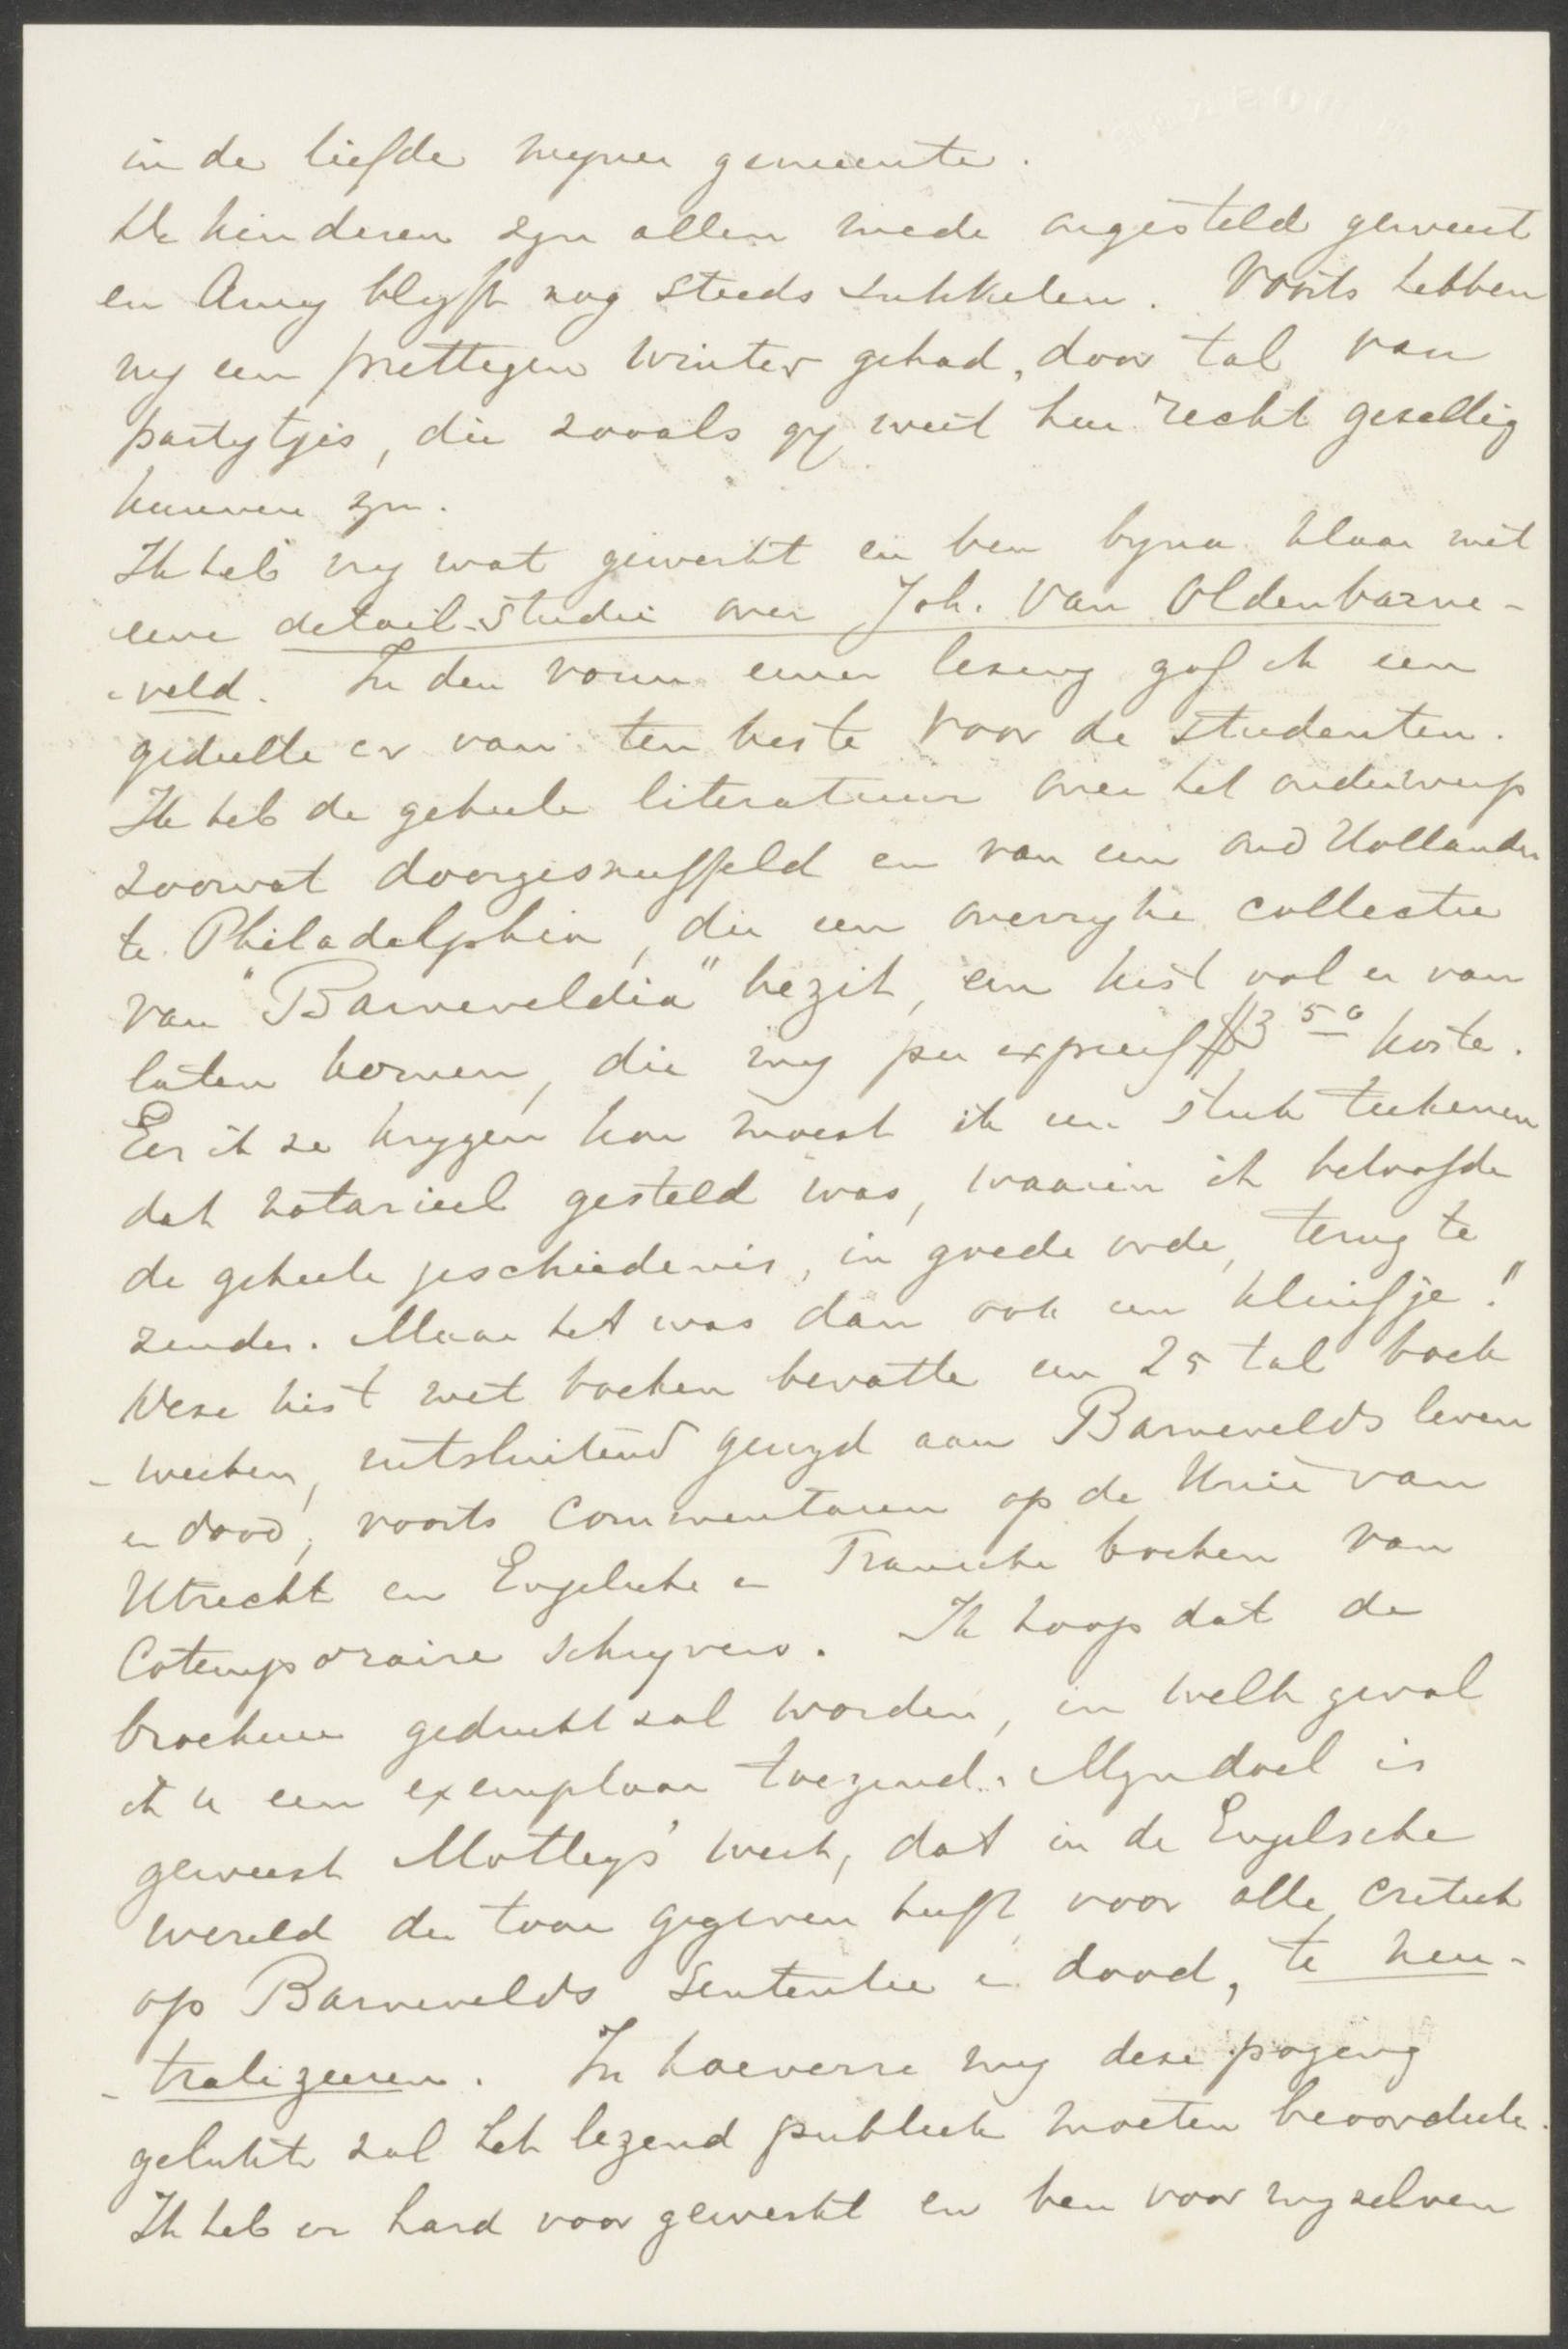 in de liefde mijner gemeente.
De kinderen zijn allen mede ongesteld geweest
en Amy blijft nog steeds sukkelen. Voorts hebben
wij een prettigen winter gehad, door tal van
partijtjes, die zooals gij weet hier recht gezellig
kunnen zijn.
Ik heb vrij wat gewerkt en ben bijna klaar met
eene detail-studie over Joh. van Oldenbarne-
-veld. In den vorm eener lezing gaf ik een
gedeelte er van ten beste voor de studenten.
Ik heb de geheele literatuur over het onderwerp
zoowat doorgesnuffeld en van een oud Hollander
te Philadelphia, die een overrijke collectie
van "Barneveldia" bezit, een kist vol er van
laten komen, die mij per expres $3 50 koste.
Eer ik ze krijgen kon moest ik een stuk teekenen
dat notarieel gesteld was, waarin ik beloofde
de geheele geschiedenis, in goede orde, terug te
zenden. Maar het was dan ook een kluifje!"
Deze kist met boeken bevatte een 25 tal boek
-werken, uitsluitend gewijd aan Barnevelds leven
en dood; voorts Commentaren op de Unie van
Utrecht en Engelsche en Fransche boeken van
Cotemporaire schrijvers. Ik hoop dat de
brochure gedrukt zal worden, in welk geval
ik u een exemplaar toezend. Mijn doel is
geweest Motley's werk, dat in de Engelsche
wereld den toon gegeven heeft voor alle critiek
op Barnevelds Sententie en dood, te neu-
-tralizeeren. In hoeverre mij deze poging
gelukte zal het lezend publiek moeten beoordeelen.
Ik heb er hard voor gewerkt en ben voor mijzelven